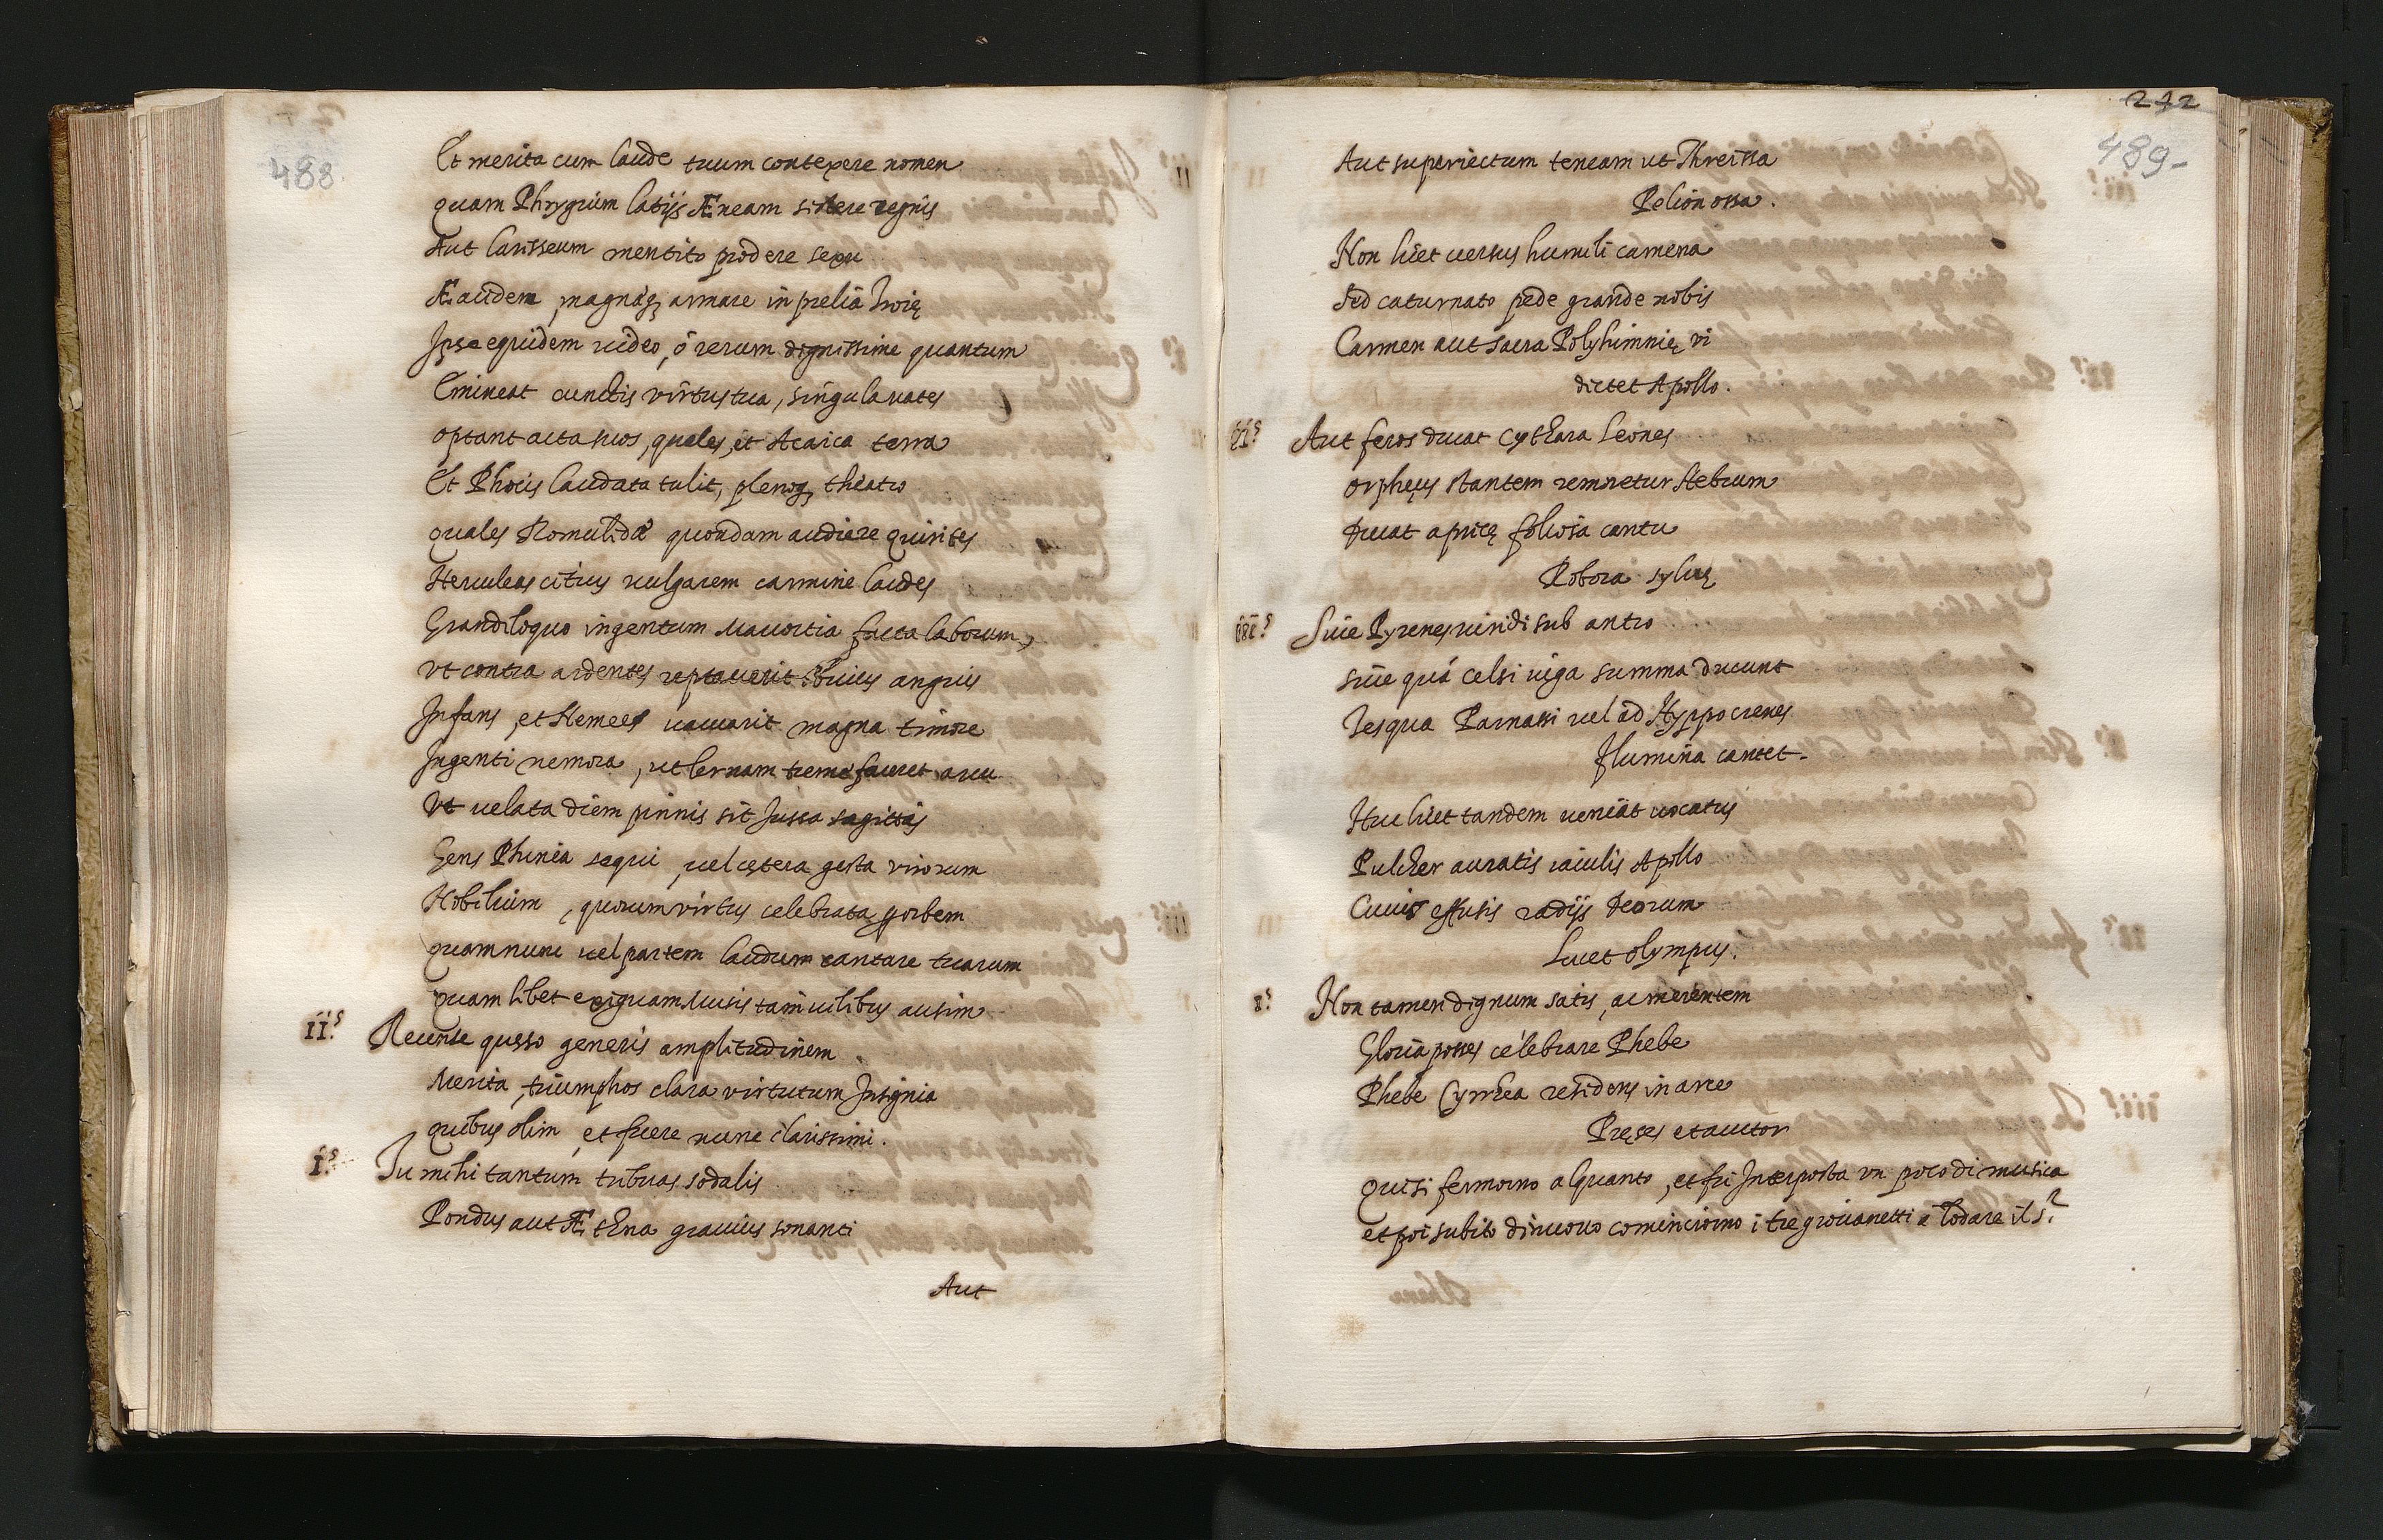 488
Et merita cum laude tuum contexere nomen
quam Phrygium latijs Æneam sistere regnis
Aut larisseum mentito prodere sexu
Æacidem, magnáq; armare in prelia Troię
Ipse equidem video, ó rerum dignissime quantum
Emineat cunctis virtus tua, singula vates
optant acta suos, quales, et Acaica terra
Et Phocis laudata tulit, plenoq; theatro
quales Romulidæ quondam audiere quirites
Herculeas citius vulgarem carmine laudes
Grandiloquo ingentum Mavortia facta laborum,
vt contra ardentes reptaverit obvius angues
Infans, et Nemees vacuarit magna timore
Ingenti nemora, ut lernam tremefaceret arcu
Vt velata diem pinnis sit Jussa sagittis
Gens Phinea sequi, vel cętera gesta virorum
Nobilium, quorum virtus celebrata p orbem
quam nunc vel partem laudum cantare tuarum
quam libet exiguam Musis tam vilibus ausim
II.s Recense quęso generis amplitudinem
Merita, triumphos clara virtutum Insignia
quibus olim, et fuere nunc clarissimi.
I.s Tu mihi tantum tribuas sodalis
Pondus aut Æthna gravius sonanti
Aut
272
489
Aut superiectum teneam ut Threissa
Pelion ossa.
Non licet versus humili camena
Sed coturnato pede grande nobis
Carmen aut sacra Polyhimnię vi
dictet Apollo.
II.s Aut feros ducat cythara leones
orpheus stantem remoretur Hebrum
Ducat apricę foliosa cantu
Robora sylvę
III.s Sive Pyrenes viridi sub antro
sive quá celsi iuga summa ducunt
Tesqua Parnassi vel ad Hyppocrenes
flumina cantet.
Huc licet tandem veniat vocatus
Pulcher auratis iaculis Apollo
Cuius effusis radijs Deorum
Lucet olympus.
8.s Non tamen dignum satis, ac merentem
Gloria posses celebrare Phebe
Phebe Cyrrhea residens in arce
Pręses et auctor
Qui si fermorno alquanto, et fù Interposta vn poco di musica
et poi subito di nuovo cominciorno i tre giovanetti a lodare il S.r